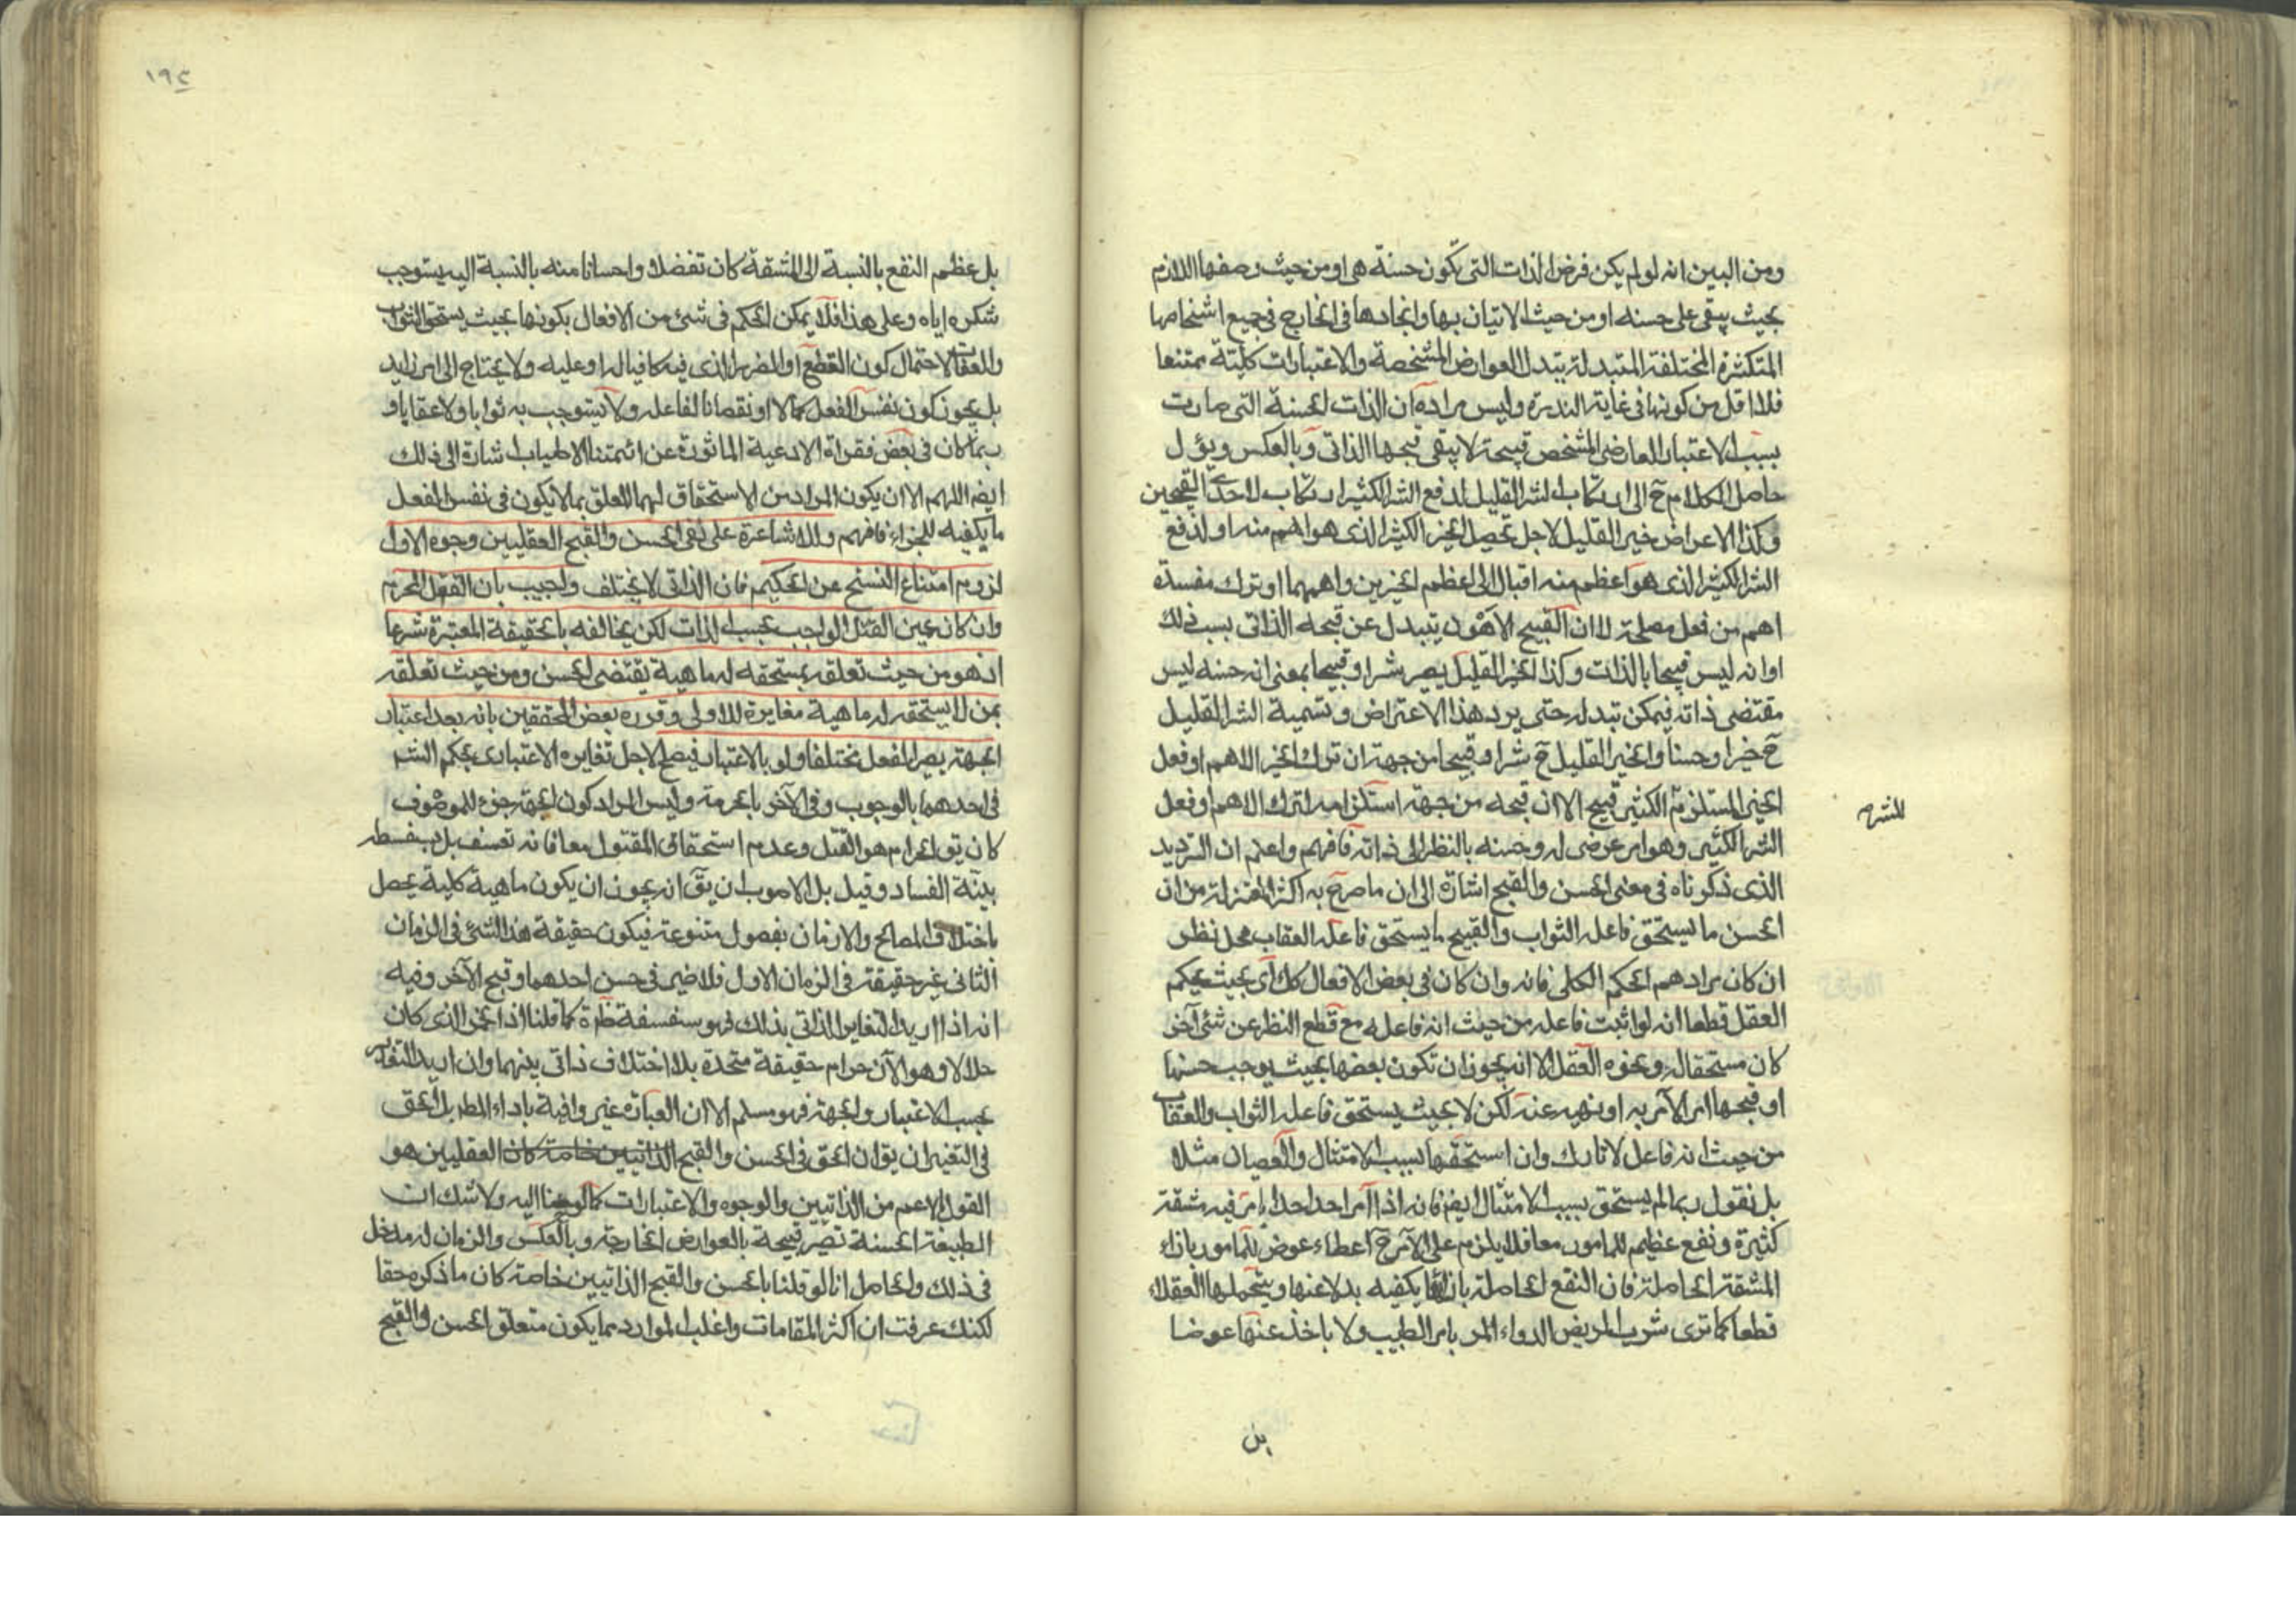 ومن البين انه لو لم يكن فرض الذات التى تكون حسنة هى او من حيث وصفها اللازم
بحيث يبقى على حسنه او من حيث الاتيان بها وايجادها فى الخارج فى جميع اشخاصها
المتكثرة المختلفة المتبدلة بتبدل العوارض المشخصة والاعتبارات كلية ممتنعا
فلا اقل من كونها فى غاية الندرة وليس مراده ان الذات الحسنة التى صارت
بسبب الاعتبار العارضى المشخص قبيحة لا يبقى قبحها الذاتى وبالعكس ويؤل
حاصل الكلام ح الى ان ارتكاب الشر القليل لدفع الشر الكثير ارتكاب لاحدى القبيحين
وكذا الاعراض خير القليل لاجل تحصيل الخير الكثير الذى هو اهم منه او لدفع
الشر الكثير الذى هو اعظم منه اقبال الى اعظم الخيرين واهمهما او ترك مفسدة
اهم من فعل مصلحة لا ان القبيح الاهون يتبدل عن قبحه الذاتى بسبب ذلك
او انه ليس قبيحا بالذات وكذا الخير القليل يصير شرا وقبيحا بمعنى ان حسنه ليس
مقتضى ذاته فيمكن تبدله حتى يرد هذا الاعتراض وتسمية الشر القليل
ح خيرا وحسنا والخير القليل ح شرا وقبيحا من جهة ان ترك الخير الاهم او فعل
الخير المستلزم الكثير قبيح الا ان قبحه من جهة استلزامه لترك الاهم او فعل
للشر
الشر الكثير وهو امر عرضى له وحسنه بالنظر الى ذاته فافهم واعلم ان الترديد
الذى ذكرناه فى معنى الحسن والقبح اشارة الى ان ما صرح به اكثر المعتزلة من ان
الحسن ما يستحق فاعله الثواب والقبيح ما يستحق فاعله العقاب محل نظر
ان كان مرادهم الحكم الكلى فانه وان كان فى بعض الافعال كك اى بحيث يحكم
العقل قطعا انه لو اثبت فاعله من حيث انه فاعله مع قطع النظر عن شئ آخر
كان مستحقا له ويجوزه العقل الا انه يجوز ان تكون بعضها بحيث يوجب حسنها
او قبحها امر الآمر به او نهيه عنه لكن لا بحيث يستحق فاعله الثواب والعقاب
من حيث انه فاعل لا تارك وان استحقها بسبب الامتثال والعصيان مثلا
بل نقول ربما لم يستحق بسبب الامتثال ايضا فانه اذا امر احد احدا بامر فيه مشقة
كثيرة ونفع عظيم للمامور معا فلا يلزم على الآمر ح اعطاء عوض للمامور بازاء
المشقة الحاصلة فان النفع الحاصلة بازائها يكفيه بدلا عنها ويتحملها العقلاء
قطعا كما ترى شرب المريض الدواء المر بامر الطبيب ولا ياخذ عنها عوضا
بل
١٩٢
بل عظم النفع بالنسبة الى المشقة كان تفضلا واحسانا منه بالنسبة اليه يستوجب
شكره اياه وعلى هذا فلا يمكن الحكم فى شئ من الافعال بكونها بحيث يستحق الثواب
والعقاب لاحتمال كون النفع او الضرر الذى فيه كافيا له او عليه ولا يحتاج الى امر زايد
بل يجوز كون نفس الفعل كمالا او نقصانا لفاعله ولا يستوجب به ثوابا ولا عقابا و
ربما كان فى بعض فقرات الادعية الماثورة عن ائمتنا الاطياب اشارة الى ذلك
ايضا اللهم الا ان يكون المراد من الاستحقاق لهما المعلق بما لا يكون فى نفس الفعل
ما يكفيه للجزاء فافهم وللاشاعرة على نفى الحسن والقبح العقليين وجوه الاول
لزوم امتناع النسخ عن الحكيم فان الذاتى لا يختلف واجيب بان القتل المحرم
وان كان عين القتل الواجب بحسب الذات لكن يخالفه بالحقيقة المعتبرة شرعا
اذ هو من حيث تعلقه بمستحقه له ماهية يقتضى الحسن ومن حيث تعلقه
بمن لا يستحقه له ماهية مغايرة للاولى وقرره بعض المحققين بانه بعد اعتبار
الجهة يصير الفعل مختلفا ولو بالاعتبار فيصح لاجل تغايره الاعتبارى بحكم الشر
فى احدهما بالوجوب وفى الآخر بالحرمة وليس المراد كون الجهة جزء للموصوف
كان يق الحرام هو القتل وعدم استحقاق المقتول معا فانه تعسف بل سفسطه
بينة الفساد وقيل بل الاصوب ان يق انه يجوز ان يكون ماهية كلية يحصل
باختلاف المصالح والازمان بفصول متنوعة فيكون حقيقة هذا الشئ فى الزمان
الثانى غير حقيقة فى الزمان الاول فلا ضير فى حسن احدهما وقبح الآخر وفيه
انه اذا اريد التغاير الذاتى بذلك فهو سفسفة ظرة كما قلنا اذا الخمر الذى كان
حلالا وهو الآن حرام حقيقة متحدة بلا اختلاف ذاتى بينهما وان اريد التغاير
بحسب الاعتبار والجهة فهو مسلم الا ان العبارة غير وافية باداء المط بل الحق
فى التغير ان يق ان الحق فى الحسن والقبح الذاتيين خاصة كان العقليين هو
القول الاعم من الذاتيين والوجوه والاعتبارات كما لوحنا اليه ولا شك ان
الطبيعة الحسنة تصير قبيحة بالعوارض الخارجة وبالعكس والزمان له مدخل
فى ذلك والحاصل انا لو قلنا بالحسن والقبح الذاتيين خاصة كان ما ذكره حقا
لكنك عرفت ان اكثر المقامات واغلب الموارد مما يكون متعلق الحسن والقبح